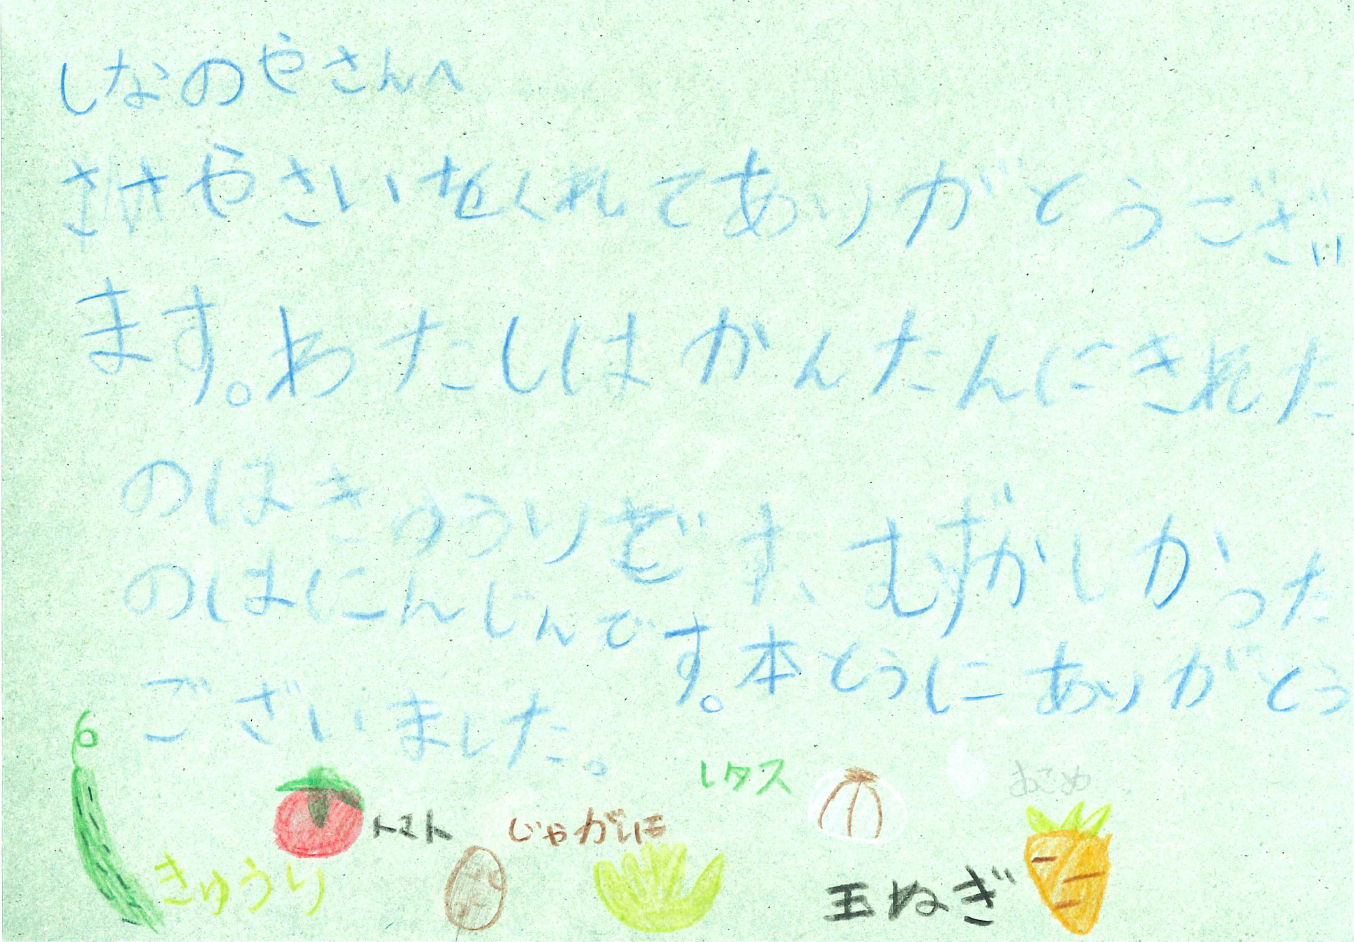 しなのやさんへ
やさいをくれてありがとうござい
ます。わたしはかんたんにきれた
のはきゅうりです、むずかしかった
のはにんじんです。本とうにありがとう
ございました。
レタス
おこめ
トマト
じゃがいも
きゅうり
玉ねぎ